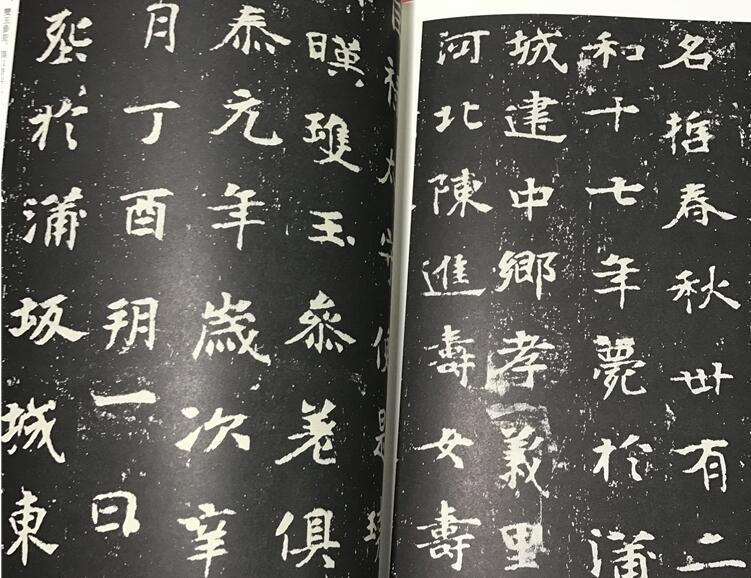 名哲春秋卅有二
和十七年薨於蒲
城建中鄉孝義里
河北陳進壽女壽
暎雙玉參差俱
泰元年歲次辛
月丁酉朔一日
於蒲坂城東